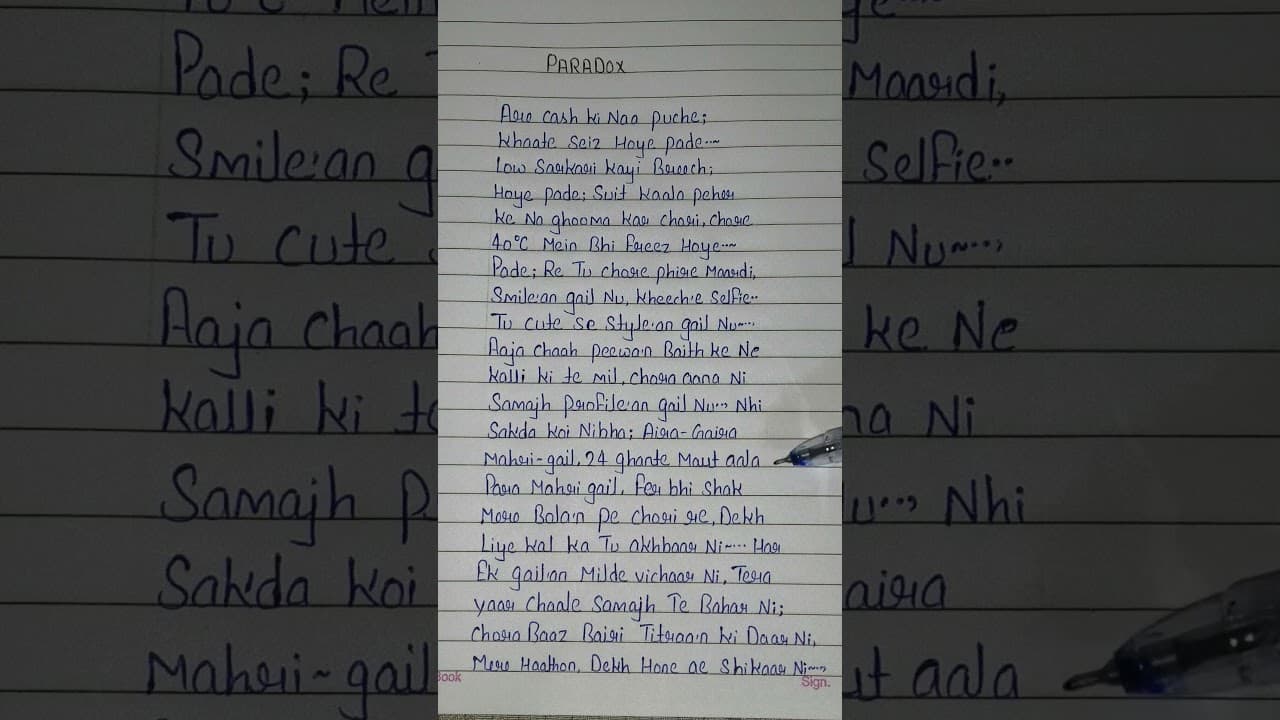 PARADOX
Arre cash ki Naa puche;
Khaate Seiz Hoye pade....
Low Sarkari Kayi Breech;
Hoye pade; Suit Kaala peher
Ke Na ghooma kar chori, chore
40°C Mein Bhi freez Hoye....
Pade; Re Tu chore phire Maardi,
Smile'an gail Nu, Kheech'e Selfie..
Tu cute se Style'an gail Nu....
Aaja chaah peewan Baith ke Ne
Kalli ki te mil, chora aana Ni
Samajh profile'an gail Nu... Nhi
Sakda Koi Nibha; Aira-Gaira
Mahri-gail, 24 ghante Maut aala
Para Mahri gail, fer bhi Shak
More Bolan pe chori re, Dekh
Liye Kal ka Tu akhbaar Ni.... Har
Ek gailan Milde vichaar Ni, Tera
yaar Chaale Samajh Te Bahar Ni;
Chora Baaz Bairi Titraan ki Daar Ni,
Mere Haathon, Dekh Hone ae Shikaar Ni....,
Book
Sign.